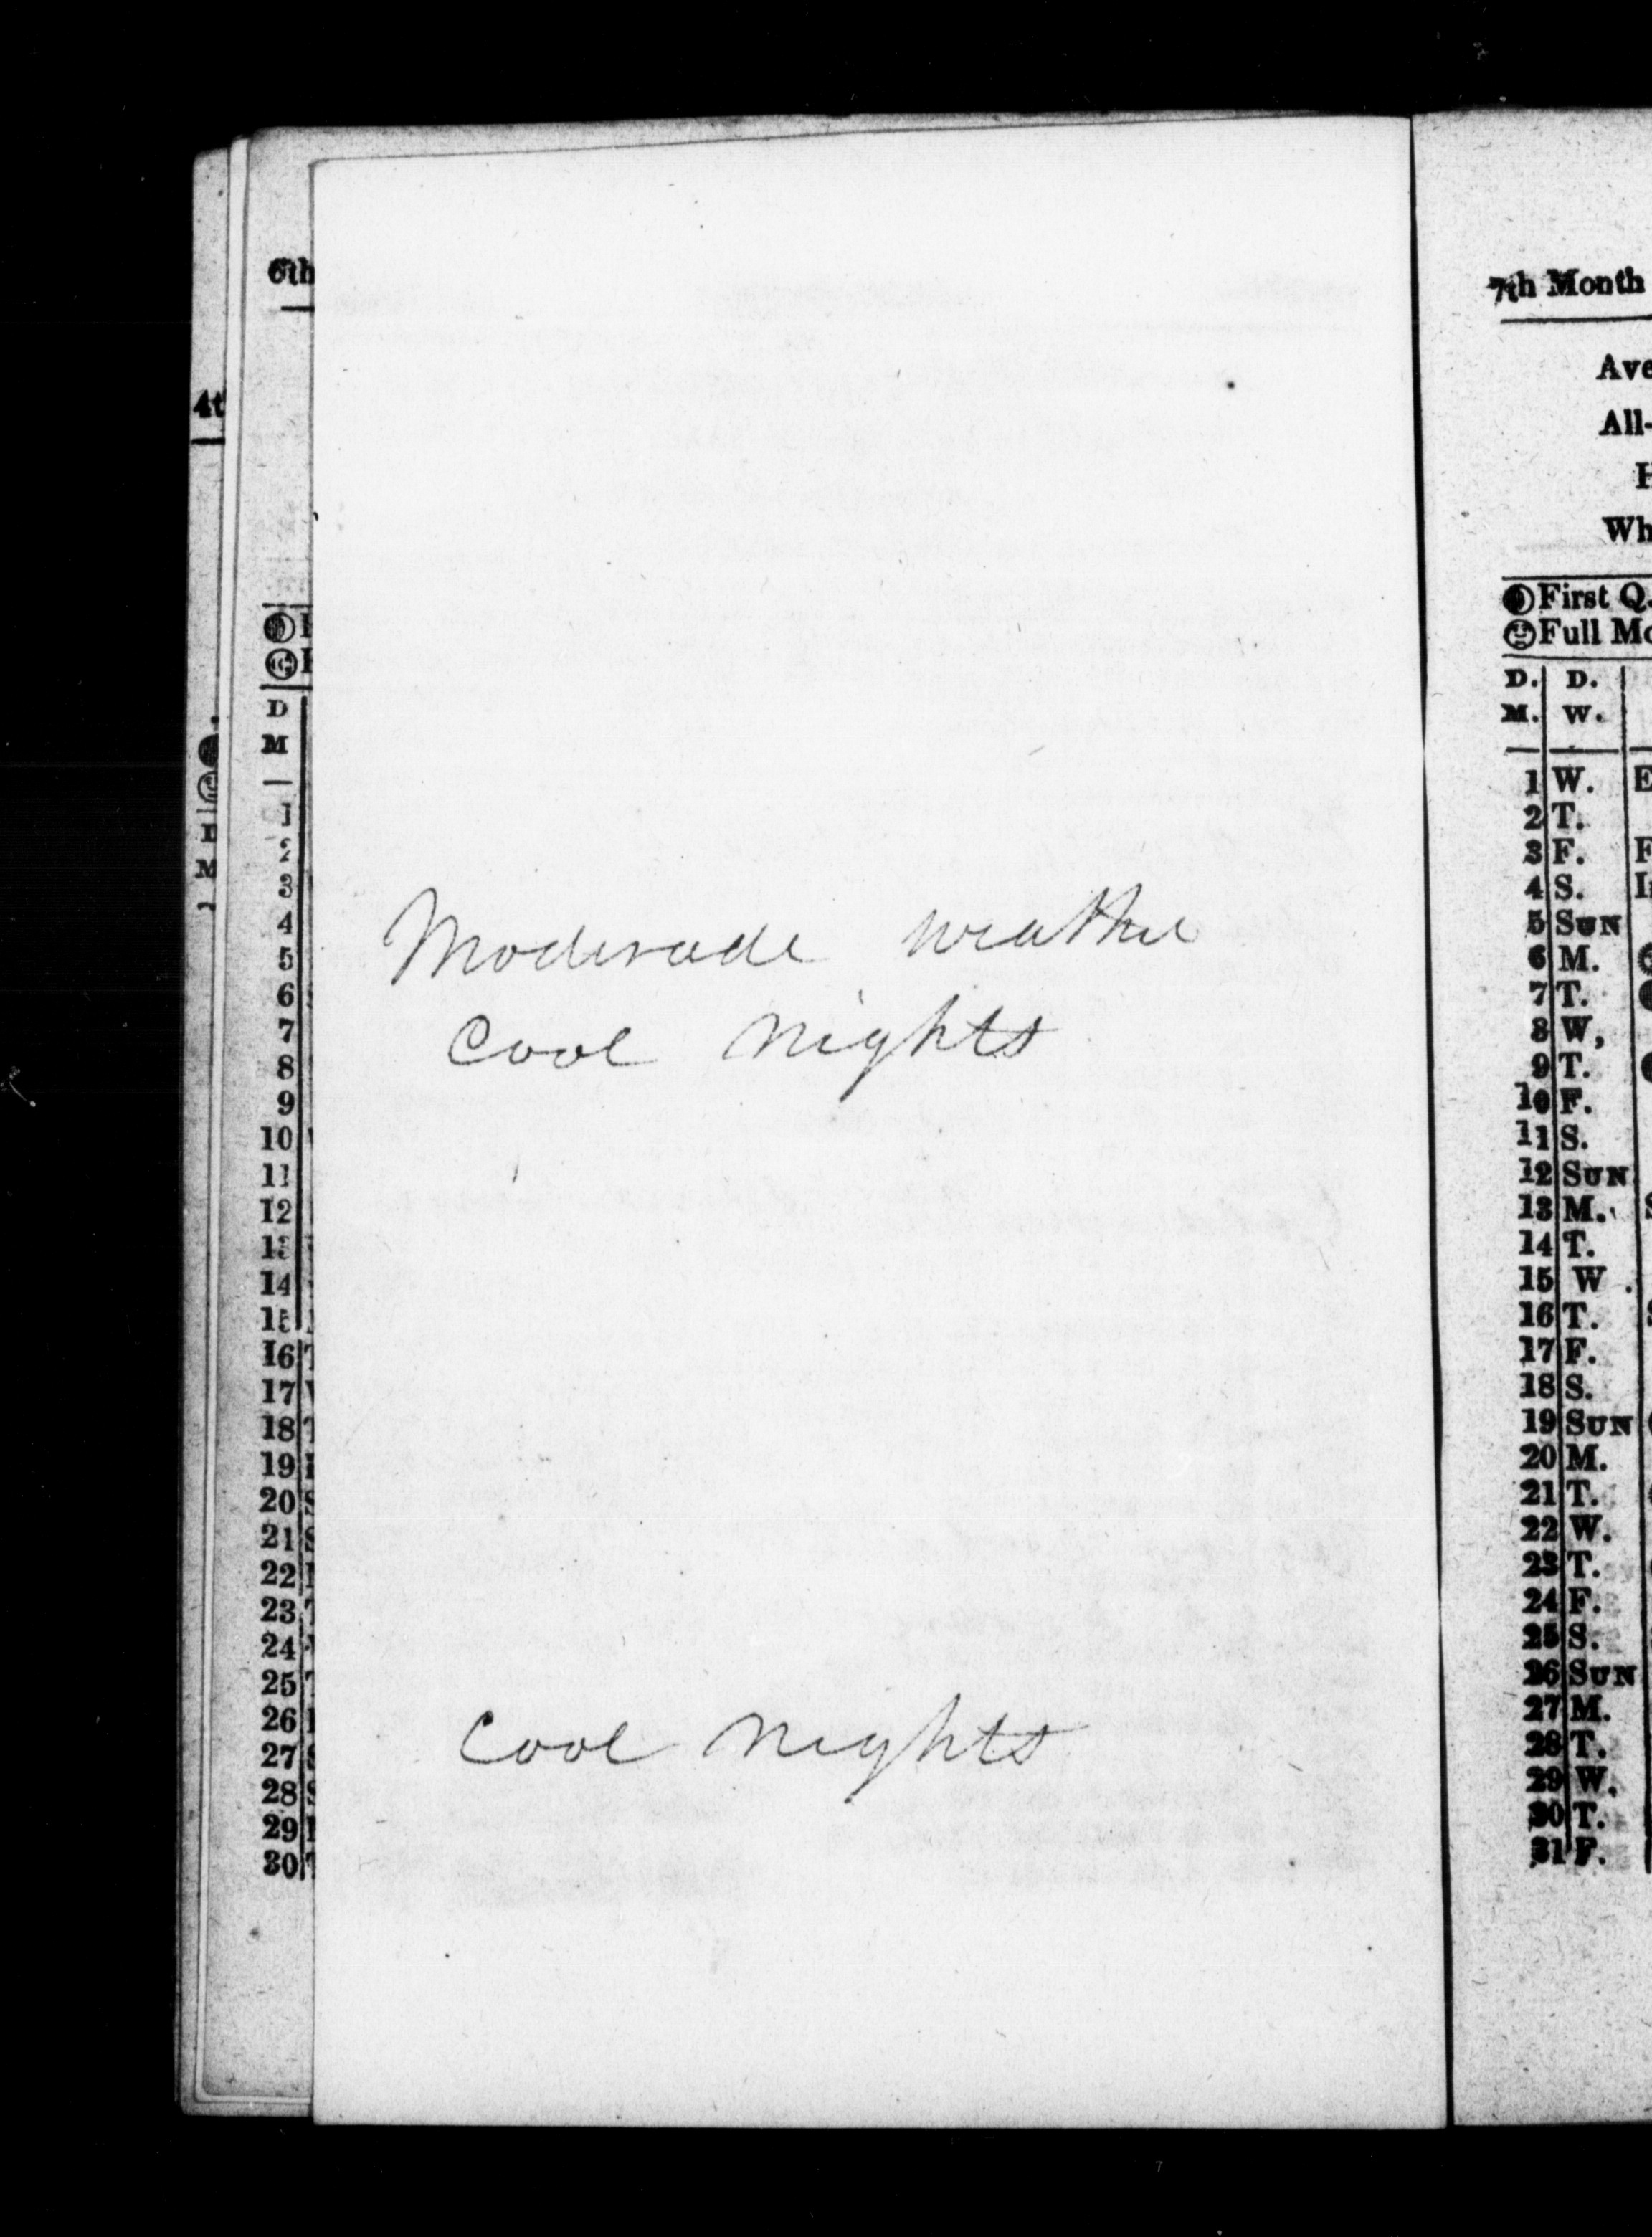 Moderade weather
Cool Nights
Cool Nights
6th
4t
D
M
1
2
3
4
5
6
7
8
9
10
11
12
13
14
15
16
17
18
19
20
21
22
23
24
25
26
27
28
29
30
7th Month
Ave
All-
H
Wh
First Q.
Full Mo
D. D.
M. W.
1 W. E
2 T.
3 F. F
4 S.
5 SUN
6 M.
7 T.
8 W,
9 T.
10 F.
11 S.
12 SUN
13 M. S
14 T.
15 W .
16 T. S
17 F.
18 S.
19 SUN
20 M.
21 T.
22 W.
23 T.
24 F.
25 S.
26 SUN
27 M.
28 T.
29 W.
30 T.
31 F.